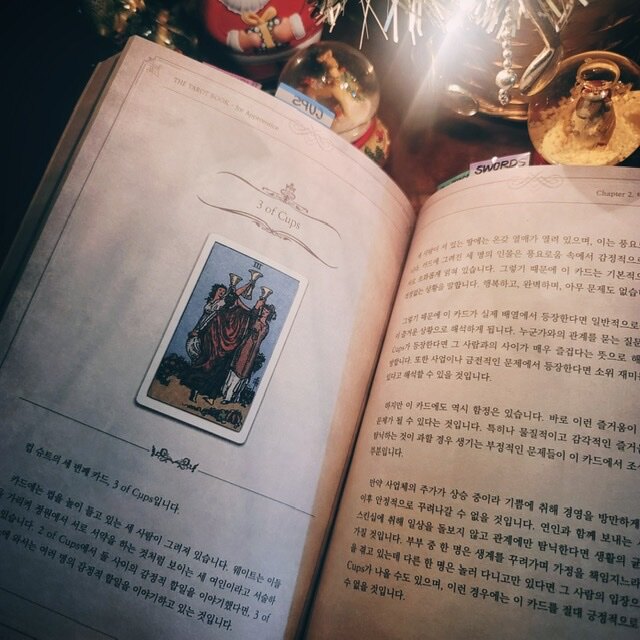 THE TAROT BOOK - for Apprentice
CUPS
3 of Cups
III
컵 슈트의 세 번째 카드, 3 of Cups입니다.
카드에는 컵을 높이 들고 있는 세 사람이 그려져 있습니다. 웨이트는 이들
가리켜 정원에서 서로 서약을 하는 것처럼 보이는 세 여인이라고 서술하
있습니다. 2 of Cups에서 둘 사이의 감정적 합일을 이야기했다면, 3 of
에 와서는 여러 명의 감정적 합일을 이야기하고 있는 것입니다.
SWORDS
Chapter 2.
사람이 서 있는 땅에는 온갖 열매가 열려 있으며, 이는 풍요로
카드에 그려진 세 명의 인물은 풍요로움 속에서 감정적으로
조화롭게 엮여 있습니다. 그렇기 때문에 이 카드는 기본적으
상황을 말합니다. 행복하고, 완벽하며, 아무 문제도 없습
그렇기 때문에 이 카드가 실제 배열에서 등장한다면 일반적으로
즐거운 상황으로 해석하게 됩니다. 누군가와의 관계를 묻는 질문
Cups가 등장한다면 그 사람과의 사이가 매우 즐겁다는 뜻으로 해
합니다. 또한 사업이나 금전적인 문제에서 등장한다면 소위 재미
있다고 해석할 수 있을 것입니다.
하지만 이 카드에도 역시 함정은 있습니다. 바로 이런 즐거움이
문제가 될 수 있다는 것입니다. 특히나 물질적이고 감각적인 즐거
탐닉하는 것이 과할 경우 생기는 부정적인 문제들이 이 카드에서 조
부분입니다.
만약 사업체의 주가가 상승 중이라 기쁨에 취해 경영을 방만하게
이후 안정적으로 꾸려나갈 수 없을 것입니다. 연인과 함께 보내는 시
스킨십에 취해 일상을 돌보지 않고 관계에만 탐닉한다면 생활의 균
가질 것입니다. 부부 중 한 명은 생계를 꾸려가며 가정을 책임지느라
을 겪고 있는데 다른 한 명은 놀러 다니고만 있다면 그 사람의 입장으
Cups가 나올 수도 있으며, 이런 경우에는 이 카드를 절대 긍정적으로
수 없을 것입니다.